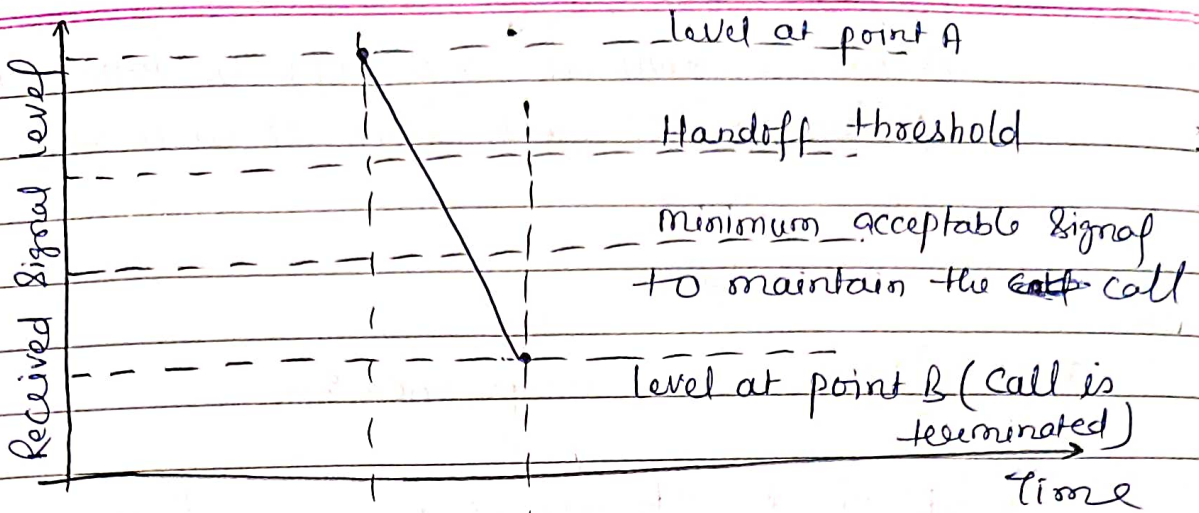 Received Signal level
level at point A
Handoff threshold
minimum acceptable signal
to maintain the call
level at point B (call is
terminated)
Time